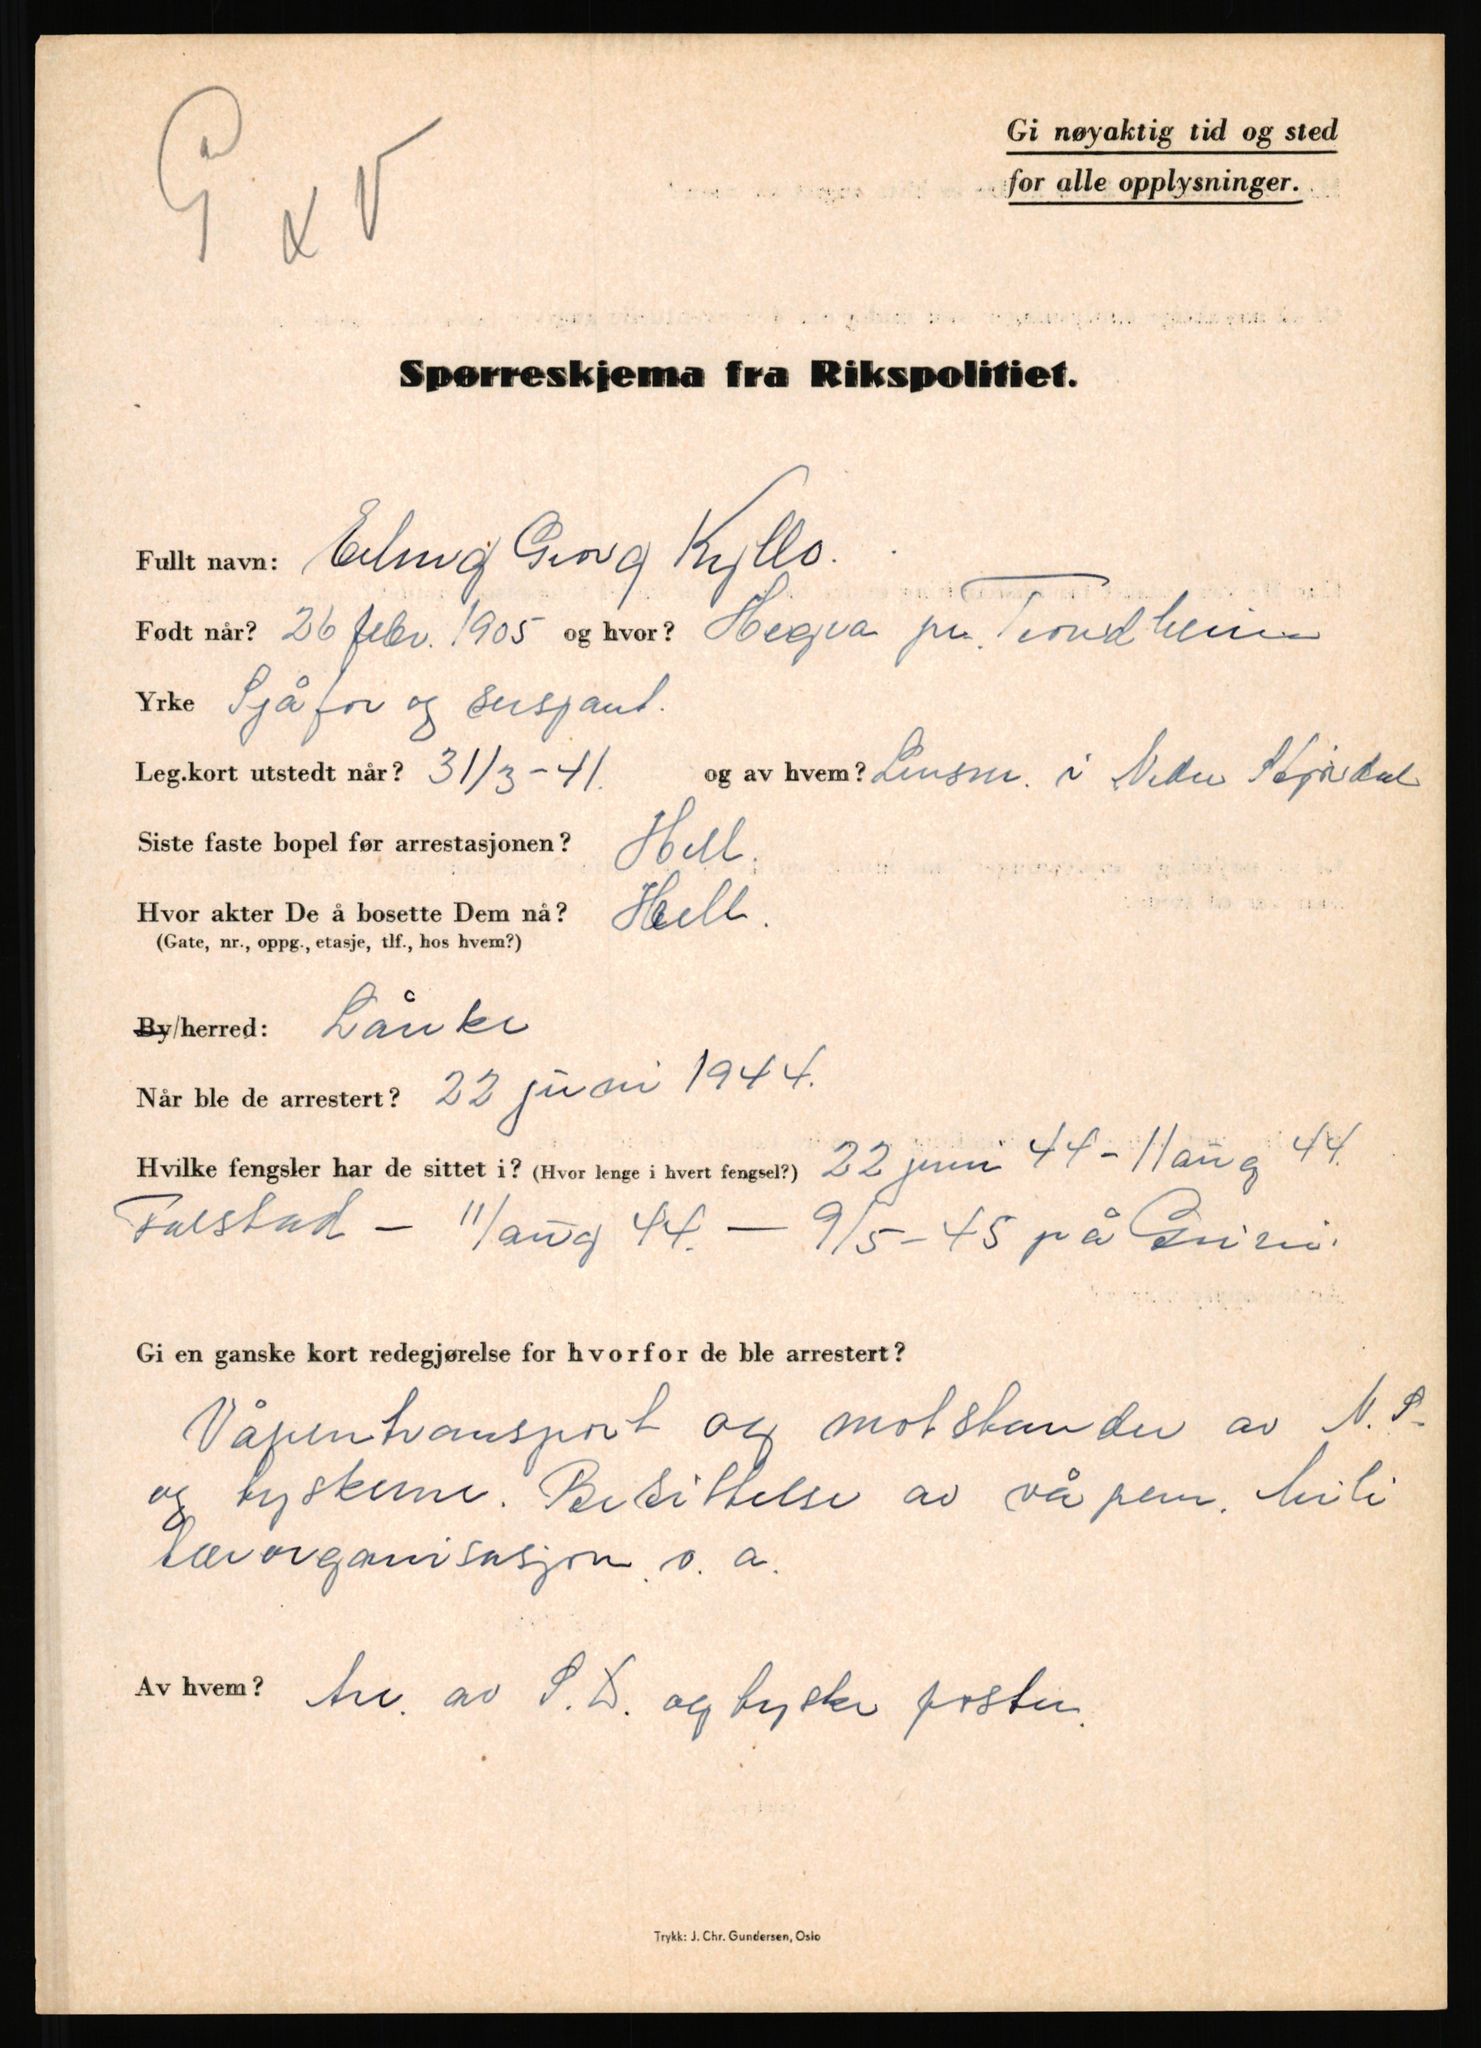 G x V
Gi nøyaktig tid og sted
for alle opplysninger.
Spørreskjema fra Rikspolitiet.
Fullt navn: Erling Georg Kyllo.
Født når? 26 febr. 1905 og hvor? Hegra pr. Trondheim
Yrke Sjåfør og
Leg.kort utstedt når? 31/3-41. og av hvem? Lensm. i Nedre Stjørdal
Siste faste bopel før arrestasjonen? Hell.
Hvor akter De å bosette Dem nå? Hell.
(Gate, nr., oppg., etasje, tlf., hos hvem?)
By/herred: Lånke
Når ble de arrestert? 22 juni 1944.
Hvilke fengsler har de sittet i? (Hvor lenge i hvert fengsel?) 22 juni 44 - 11 aug 44.
Falstad - 11/aug 44. - 9/5-45 på Grini.
Gi en ganske kort redegjørelse for hvorfor de ble arrestert?
Våpentransport og motstander av N.S.
og tyskerne. Besittelse av våpen. Mili
tærorganisasjon o. a.
Av hvem? Arr. av S.D. og tyske poster.
Trykk: J. Chr. Gundersen, Oslo